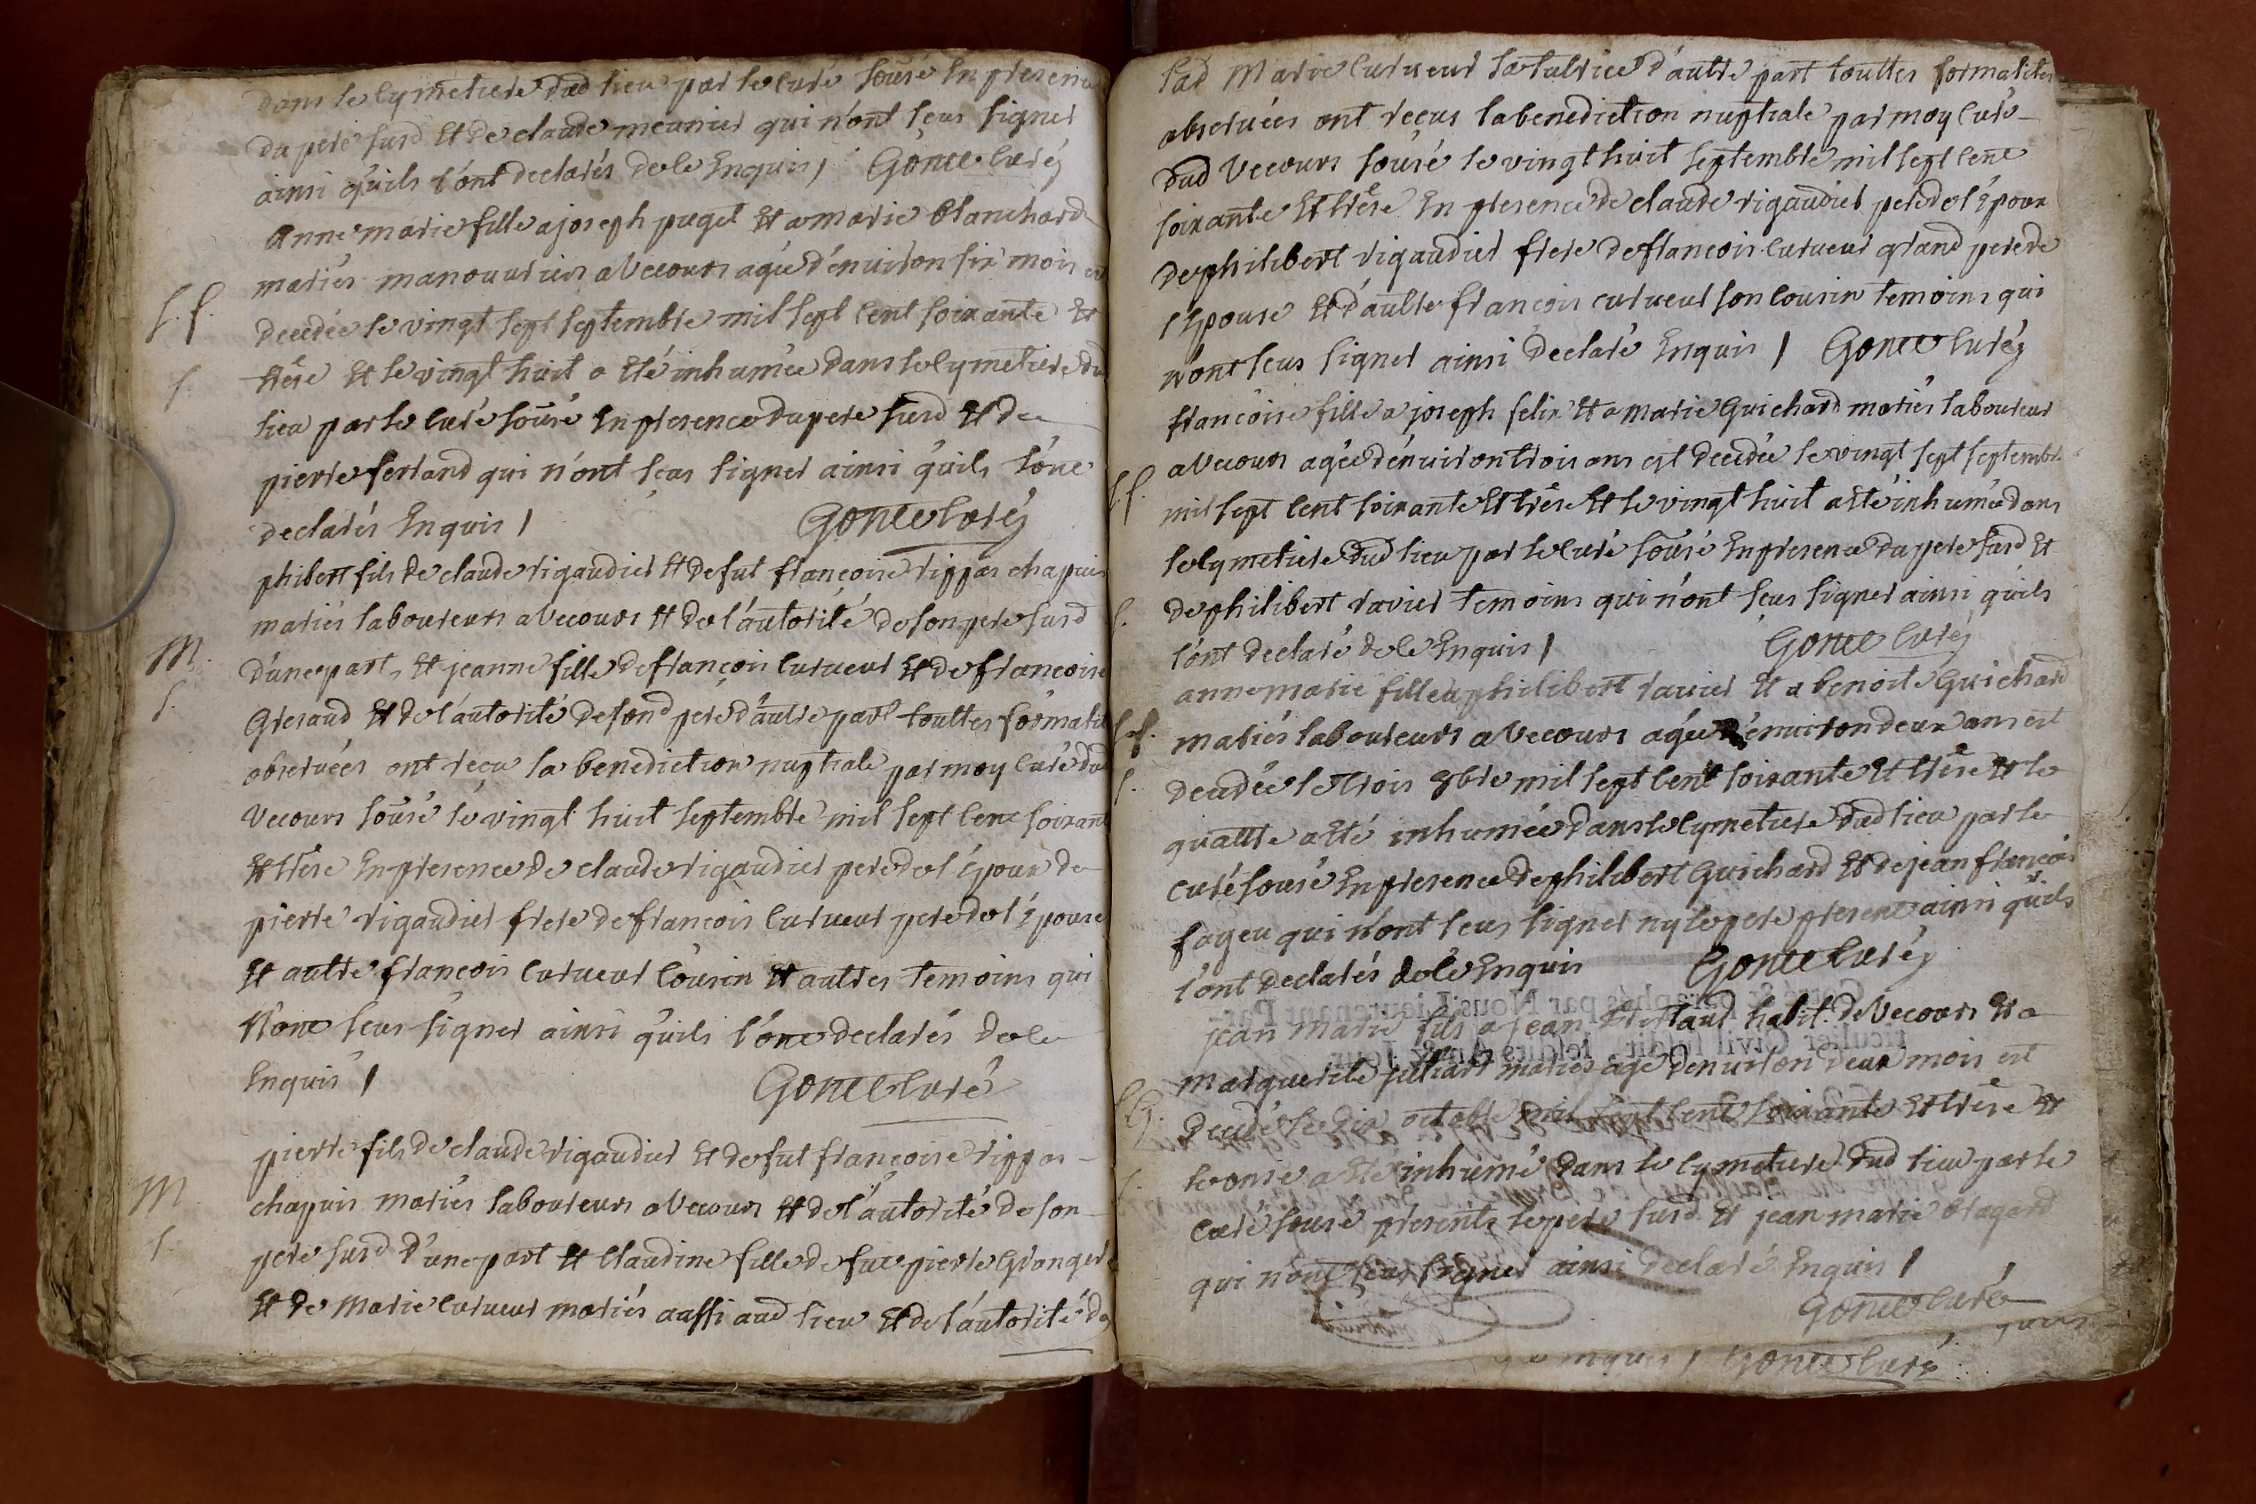 dans le cymetiere dud lieu par le curé sousé En presence
du pere susd Et de claude meunier qui n'ont sçus signer
ainsi qu'ils l'ont declarés de ce Enquis / Gonce curéz
Anne marie fille a joseph puget Et a marie blanchard
mariés manouuriers a Vecours agée d'enuiron six mois est
decedée le vingt sept septembre mil sept cent soixante Et
trêse Et le vingt huit a Eté inhumée dans le cymetiere dud
S. f.
lieu par le curé sousé En presence du pere susd Et de
S.
pierre ferland qui n'ont sçus signer ainsi qu'ils l'one
declarés Enquis / Gonce curéz
phibert fils de claude rigaudier Et de fut françoise rippas chapuis
mariés laboureurs a Vecours Et de l'autorité de son pere susd
d'une part, Et jeanne fille de françois curueur Et de francoise
M.
Greraud Et de l'autorité de sond pere d'autre part touttes formalit
S.
obseruées ont recu la benediction nuptiale par moy curé dud
Vecours sousé le vingt huit septembre mil sept cene soixante
Et trese En presence de claude rigaudier pere de l'Epoux de
pierre rigaudier frere de francois curueur pere de l'Epouse
Et autre françois curueur cousin Et autres temoins qui
N'one sçus signer ainsi qu'ils l'one declarés de ce
Enquis / Gonce curé
pierre fils de claude rigaudier Et de fut françoise rippas
M
chapuis mariés laboureurs a Vecours Et de l'autorité de son
S.
pere susd d'une part Et claudine fille de fue pierre Granger
Et de Marie curueur mariés aussi aud lieu Et de l'autorité de
lad Marie curueur sa tutrice d'autre part touttes formalites
obseruées ont reçus la benediction nuptiale par moy curé
dud Vecours sousé le vingt huit septembre mil sept cene
soixante Et trêse En presence de claude rigaudier pere de l'Epoux
de philibert rigaudier frere de francois curueur grand pere de
l'Epouse Et d'aultre francois curueur son cousin temoins qui
n'ont sçus signer ainsi declaré Enquis / Gonce curéz
francoise fille a joseph felix Et a marie Guichard mariés laboureur
a Vecours agée d'enuiron trois ans est decedée le vingt sept septembre
S. f.
mil sept cent soixante Et trêse Et le vingt huit a Eté inhumée dans
le cymetiere dud lieu par le curé sousé En presence du pere susd Et
S.
de philibert rauier temoins qui n'ont sçus signer ainsi qu'ils
l'ont declaré de ce Enquis / Gonce curéz
anne marie fille a philibert rauier Et a benoite Guichard
S. f.
mariés laboureurs a Vecours agée d'enuiron deux ans est
S.
decedée le trois 8bre mil sept cent soixante Et trêse Et le
quattre a Eté inhumée dans le cymetiere dud lieu par le
curé sousé En presence de philibert Guichard Et de jean françois
fageu qui n'ont sçus signer ny le pere presene ainsi qu'ils
l'ont declarés de ce Enquis Gonce curéz
jean marie fils a jean habit. de Vecours Et a
marguerite mariés agé denuiron deux mois est
S. G.
decedé le dix octobre mil sept cent soixante Et trêse Et
le onse a Eté inhumé dans le cymetiere dud lieu par le
curé sousé presents le pere susd Et jean marie blagard
qui n'one sçus signer ainsi declaré Enquis /
Gonce curé
Enquis / Gonce curé